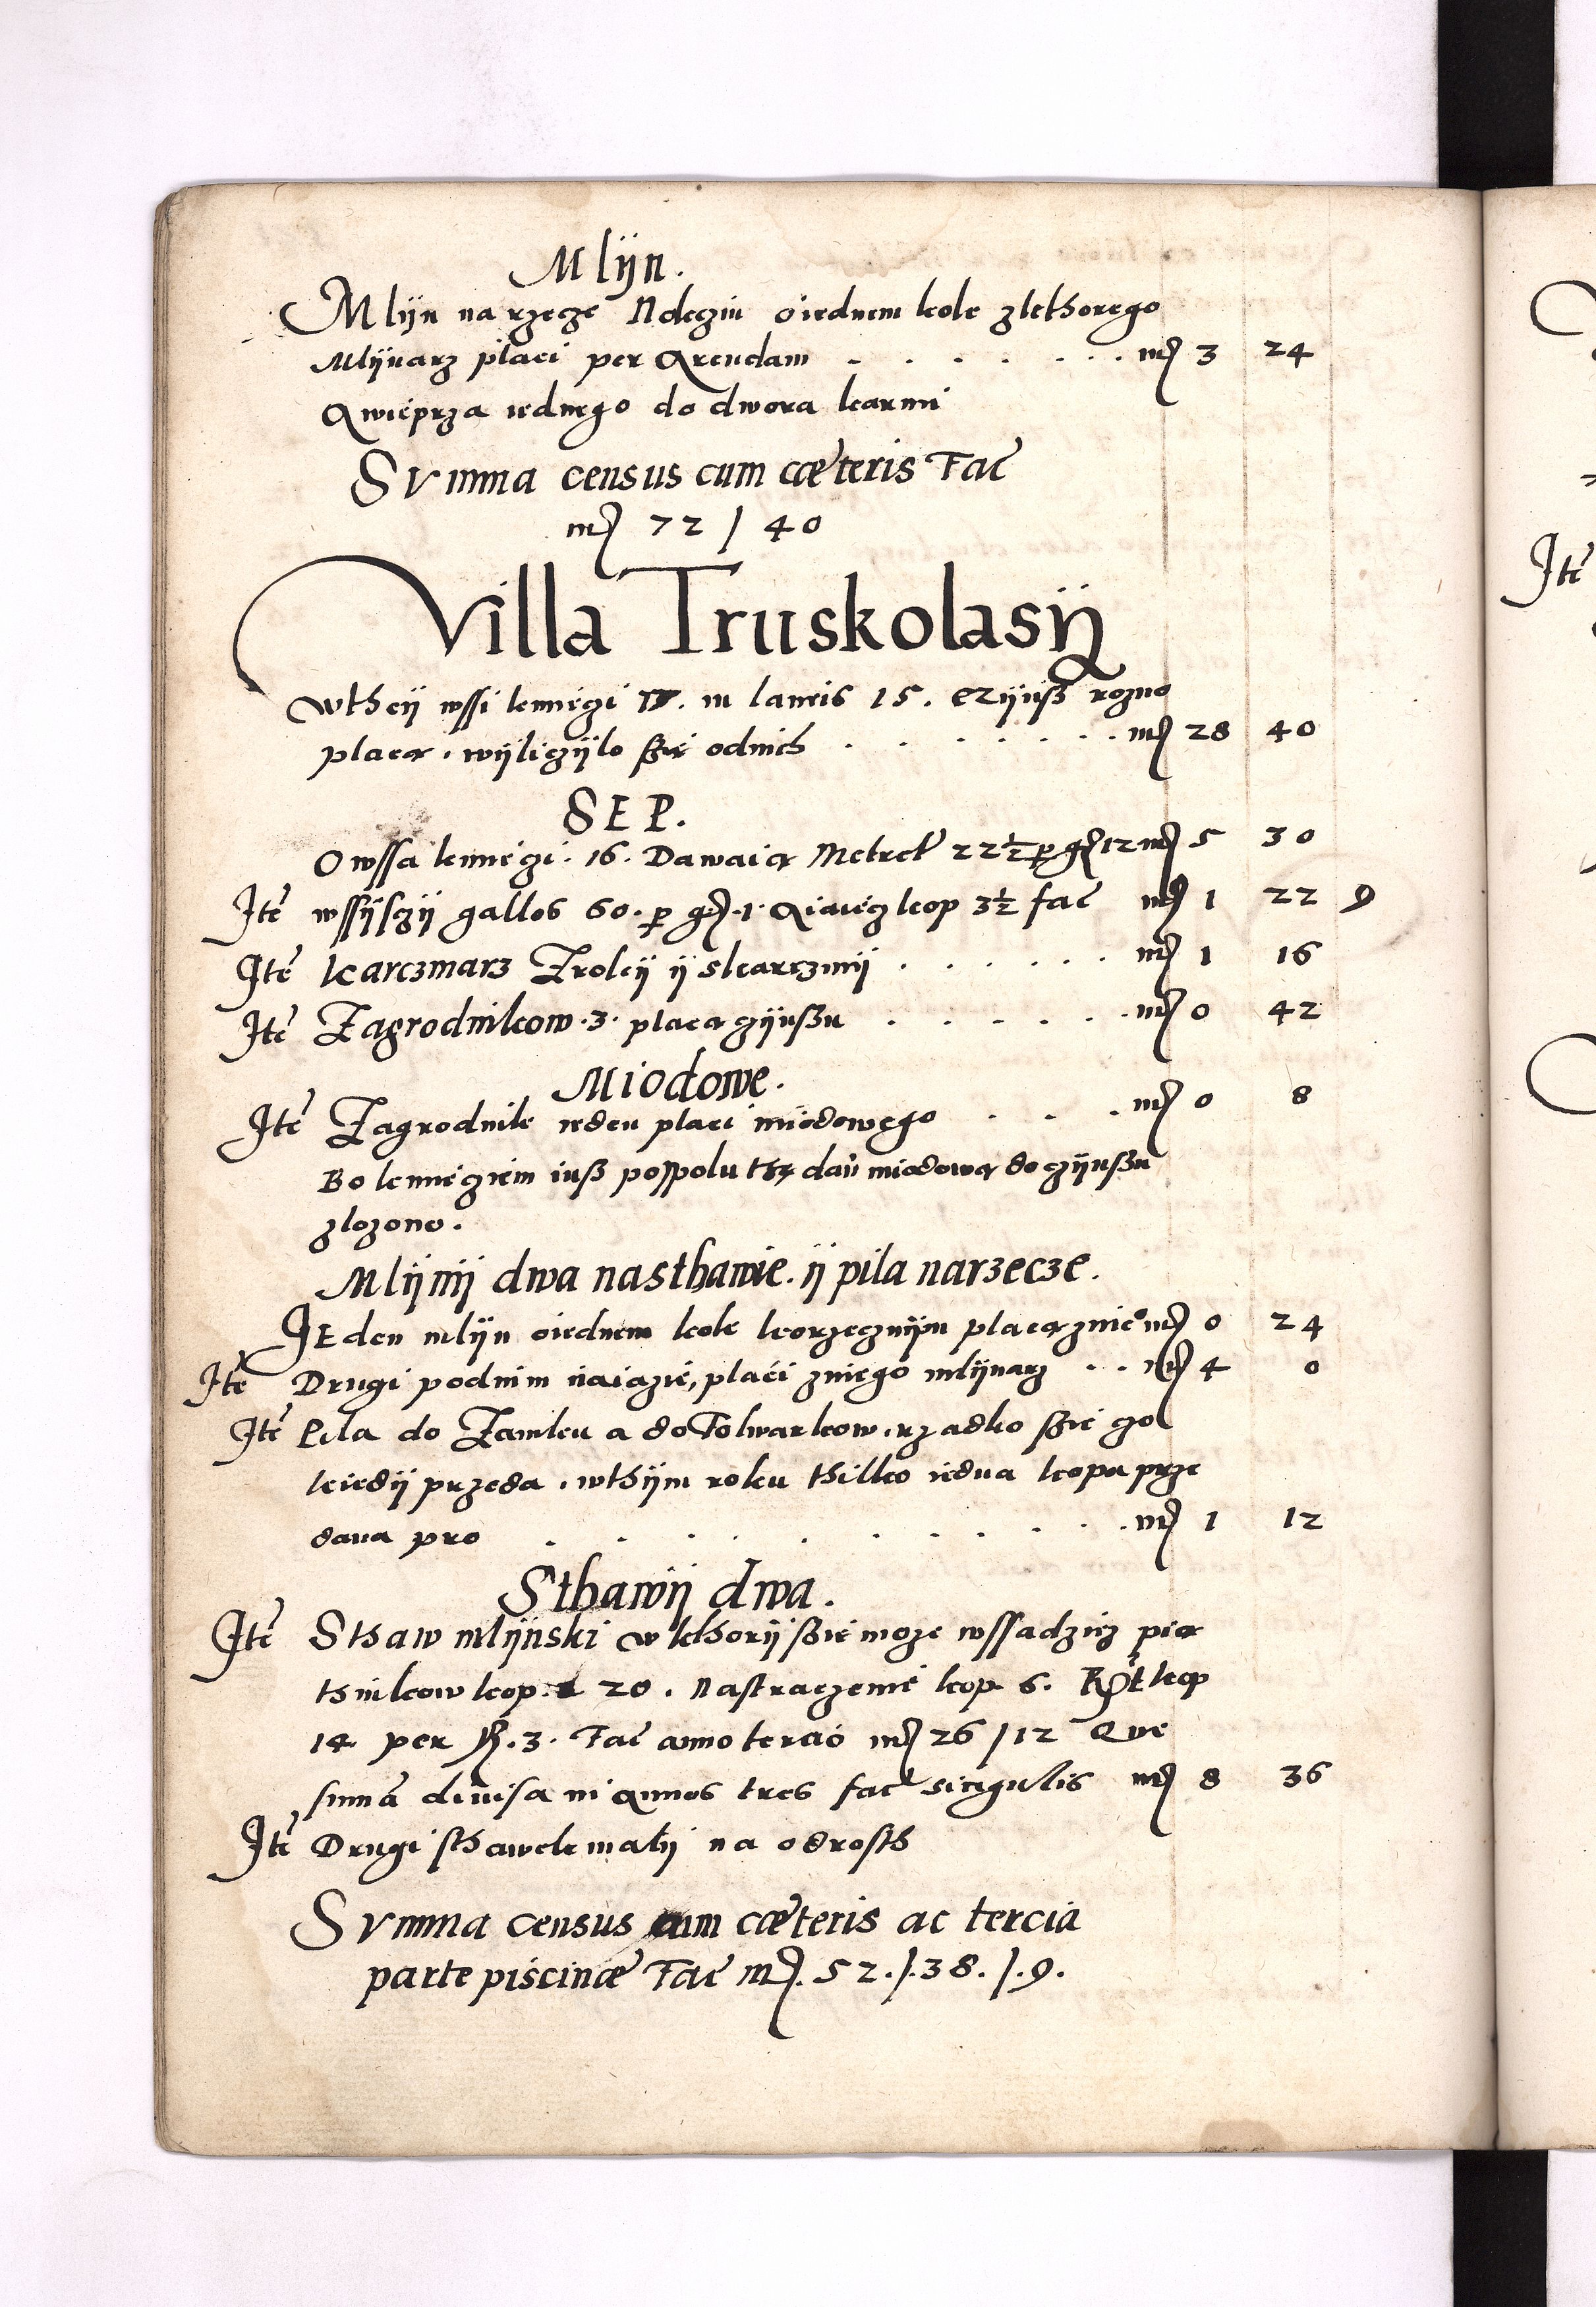 Mlÿn.
Mlÿn na rzecze Ndeczin oiednem kole zkthorego
Mlÿnarz placi per Arendam . . . . . . . mꝛ 3 24
A wieprza iednego do dwora karmi
Summa census cum cæteris Facͭ
mꝛ 72 / 40
Villa Truskolasÿ
Wtheÿ wssi kmieczi in laneis 15. czÿnsz rozno
placą. wÿliczÿlo szie odnich . . . . . . . mꝛ 28 40
SEP.
Owssa kmieczi. 16. Dawaią Metret 22½ p gꝛ 12 mꝛ 5 30
Itē wssÿsczÿ gallos 60. p gꝛ. 1. Aiaiecz kop 3½ facͭ mꝛ 1 22 9
Itē karczmarz Zroleÿ ÿ skarczmÿ . . . . . . mꝛ 1 16
Itē Zagrodnikow. 3. placą czÿnszu . . . . . . mꝛ 0 42
Miodowe.
Itē Zagrodnik ieden placi miodowego . . . mꝛ 0 8
Bo kmieciem iusz pospolu thę dań miodową do czÿnszu
zlozono.
Mlÿnÿ dwa nasthawie. ÿ pila narzecze.
Ieden mlÿn oiednem kole korzecznÿm placą znie° mꝛ 0 24
Itē Drugi podnim naiazie, placi zniego mlÿnarz . . mꝛ 4 0
Itē Pila do Zamku a do Folwarkow. rzadko szie czo
kiedÿ przeda. wthÿm roku thilko iedna kopa prze
dana pro . . . . . . . . . mꝛ 1 12
Sthawÿ dwa.
Itē Sthaw mlÿnski w kthorÿ szie moze wssadzicz pią
thnikow kop. 20. Nastraczenie kop. 6. kop
14 per 3. Facͭ anno tercio mꝛ 26 / 12 Que
summa divisa in annos tres facͭ singulis mꝛ 8 36
Itē Drugi sthawek malÿ na odrosth
Summa census cum cæteris ac tercia
parte piscinæ Facͭ mꝛ. 52. /. 38. /. 9.
Itē